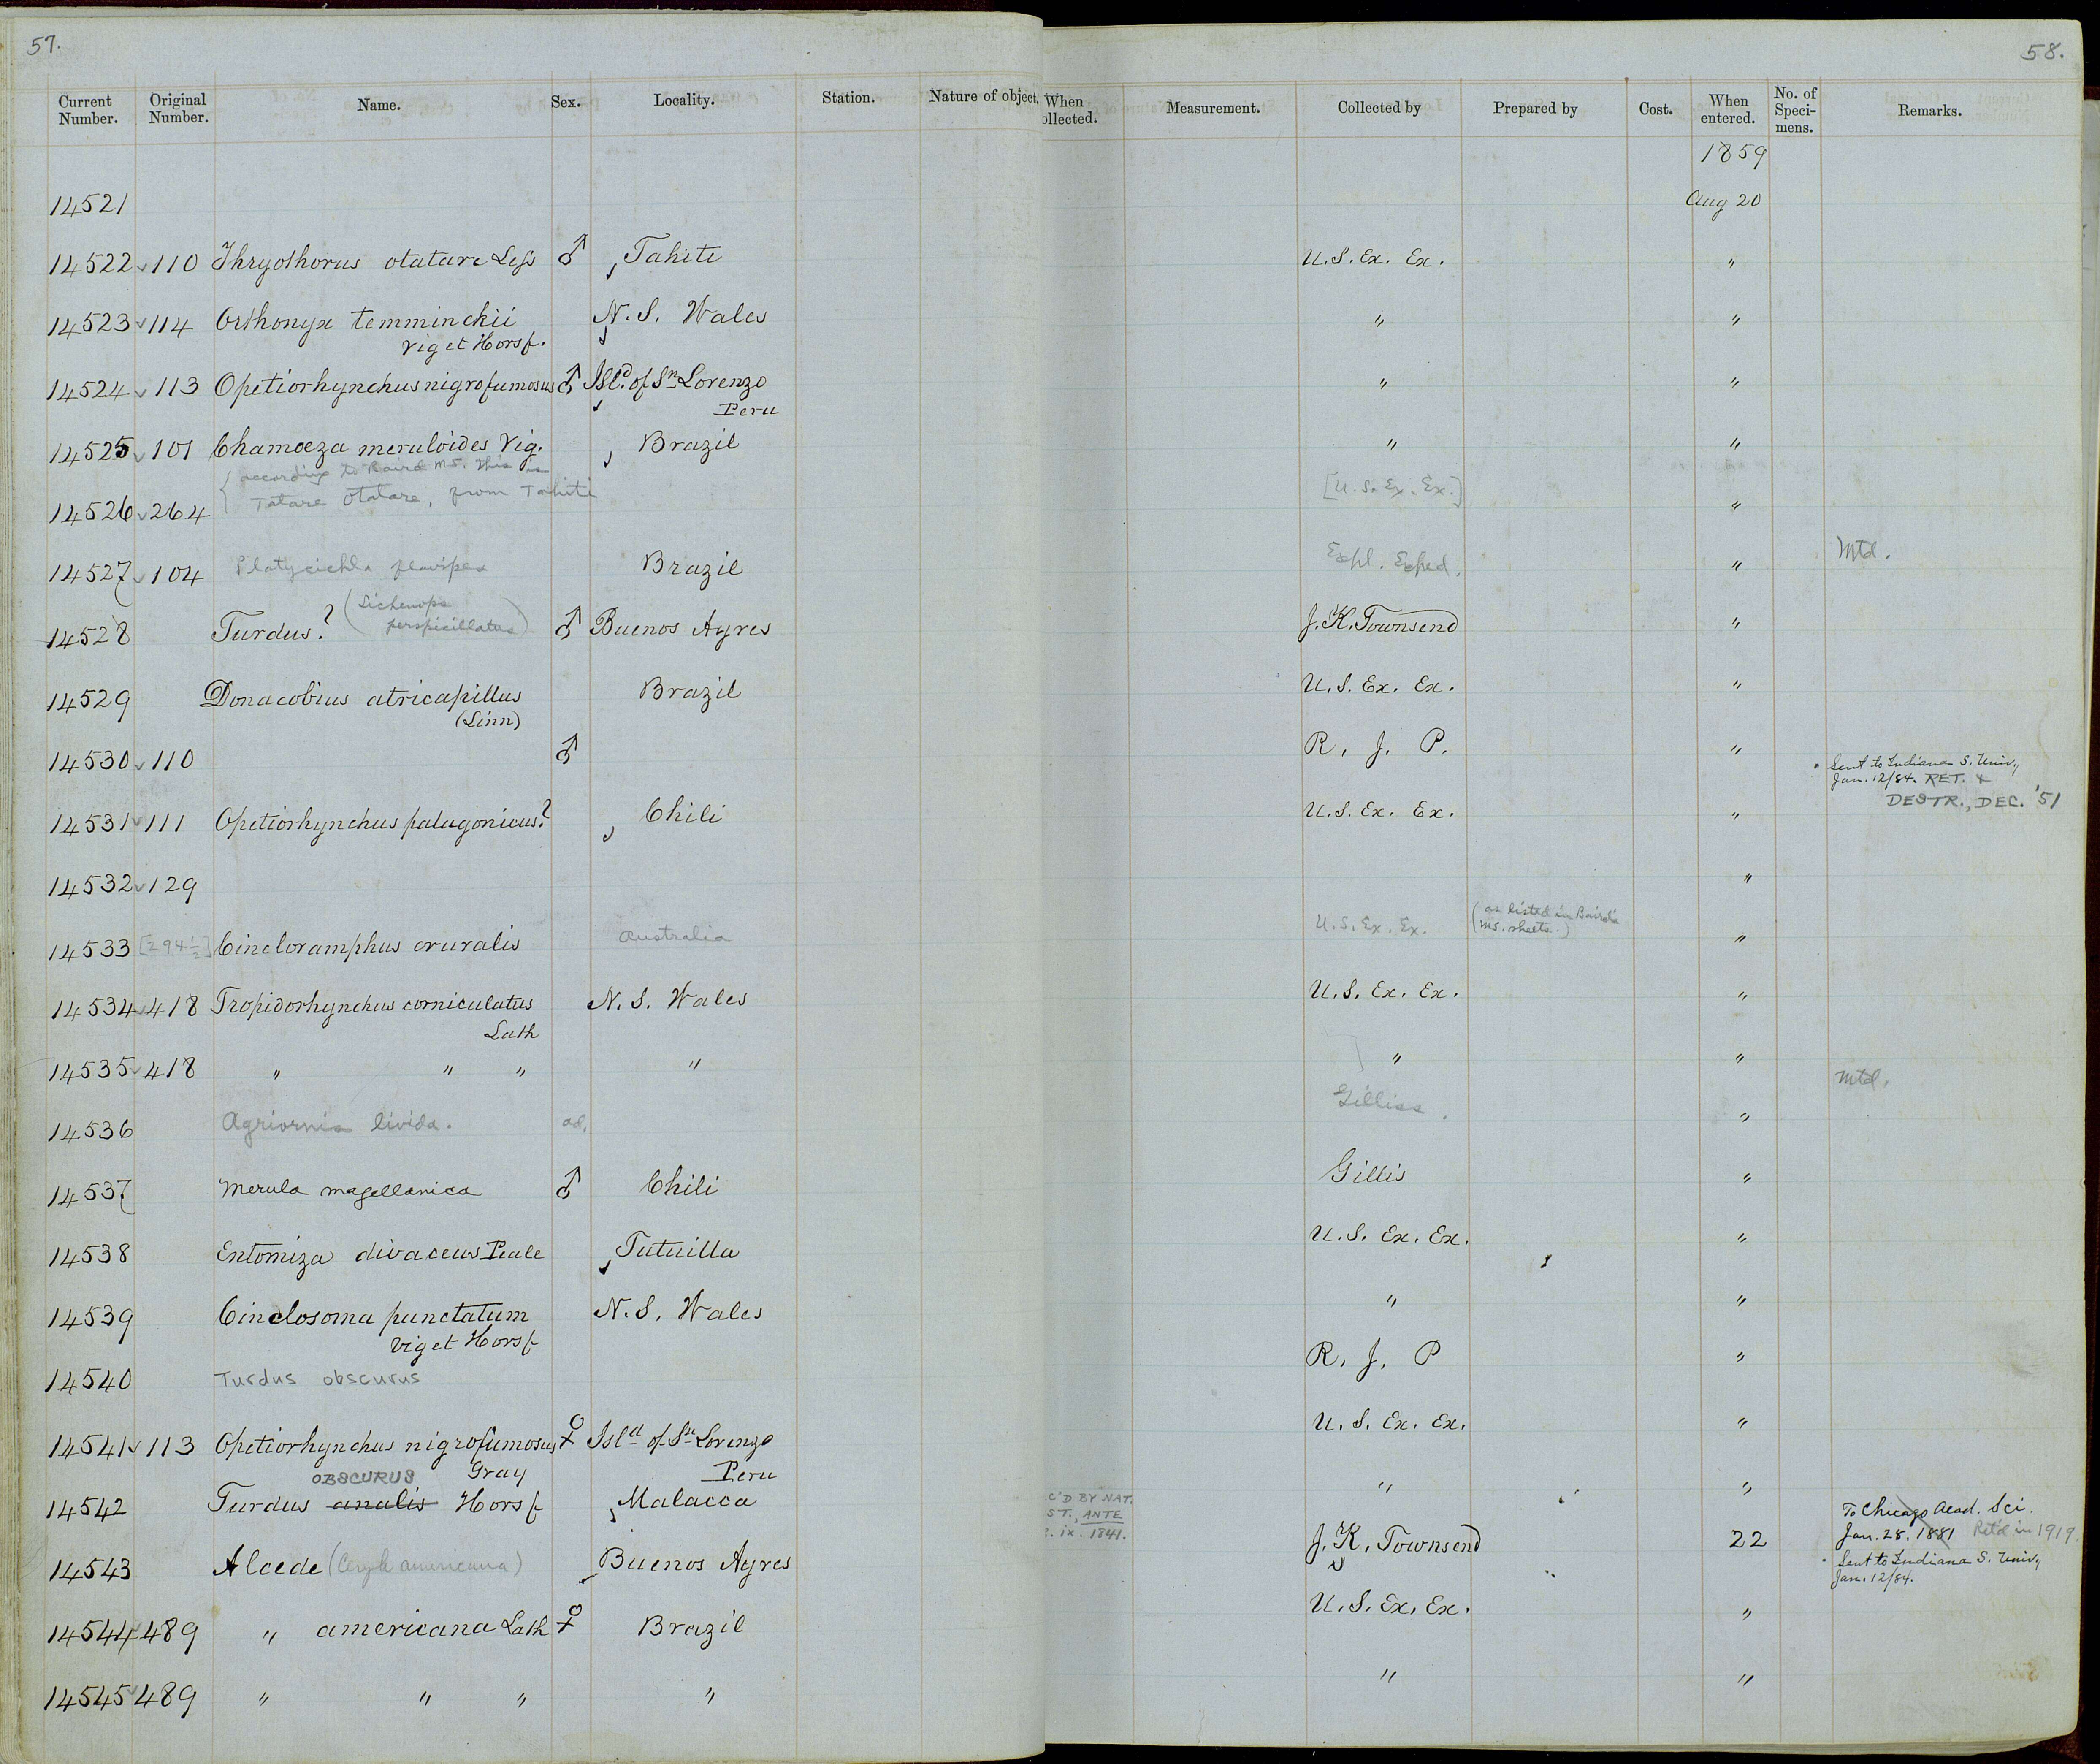 57.
58.
Current Number. Original Number. Name. Sex. Locality. Station. Nature of object. When ollected. Measurement. Collected by Prepared by Cost. When entered. No. of Speci- mens. Remarks.
1859
14521 Aug 20
14522 110 Thryothorus otatare Less ♂ Tahiti U.S. Ex. Ex. "
14523 114 Orthonyx temminckii N. S. Wales " "
Vig et Horsf.
14524 113 Opetiorhynchus nigrofumosus ♂ Isld. of Sn Lorenzo " "
Peru
14525 101 Chamœza meruloides Vig. Brazil " "
{ according to Baird MS. this is
Tatare otatare, from Tahiti
14526 264 [U.S. Ex. Ex.] "
14527 104 Platycichla flavipes Brazil Expl. Exped. " Mtd.
14528 Turdus? (Lichenops perspicillatus) ♂ Buenos Ayres J. K. Townsend "
14529 Donacobius atricapillus Brazil U.S. Ex. Ex. "
(Linn)
14530 110 ♂ R. J. P. " Sent to Indiana S. Univ,
Jan. 12/84. RET. &
DESTR., DEC. '51
14531 111 Opetiorhynchus patagonicus? Chili U.S. Ex. Ex. "
14532 129 "
14533 [294½] Cincloramphus cruralis Australia U.S. Ex. Ex. (as listed in Baird's MS. sheets.) "
14534 418 Tropidorhynchus corniculatus N. S. Wales U.S. Ex. Ex. "
Lath
14535 418 " " " " " "
14536 Agriornis livida. ad. Gilliss. " Mtd.
14537 Merula magellanica ♂ Chili Gillis "
14538 Entomiza divaceus Peale Tutuilla U.S. Ex. Ex. "
14539 Cinclosoma punctatum N. S. Wales " "
Vig et Horsf
14540 Turdus obscurus R. J. P "
14541 113 Opetiorhynchus nigrofumosus ♀ Isld of Sn Lorenzo U.S. Ex. Ex. "
Gray Peru
OBSCURUS
14542 Turdus analis Horsf Malacca C'D BY NAT. ST., ANTE . IX. 1841. " "
To Chicago Acad. Sci.
Jan. 28. 1881 Ret'd in 1919.
14543 Alcede (Ceryle americana) Buenos Ayres J. K. Townsend 22 Sent to Indiana S. Univ,
Jan. 12/84.
14544 489 " americana Lath ♀ Brazil U.S. Ex. Ex. "
14545 489 " " " " " "